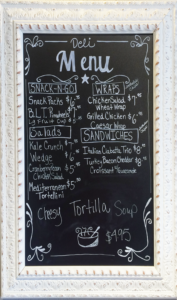 Deli
Menu
SNACK-N-GO
Snack Packs $6
B.L.T. Pinwheels $7
Salads
Kale Crunch $7
Wedge $6
Cranberry Pecan
Chicken Salad
Mediterranean
Tortellini
WRAPS
Chicken Salad
Wheat Wrap
Grilled Chicken $6
Caesar Wrap
SANDWICHES
Italian Ciabatta
Turkey Bacon Cheddar
Croissant
Chesy Tortilla Soup
$4.95